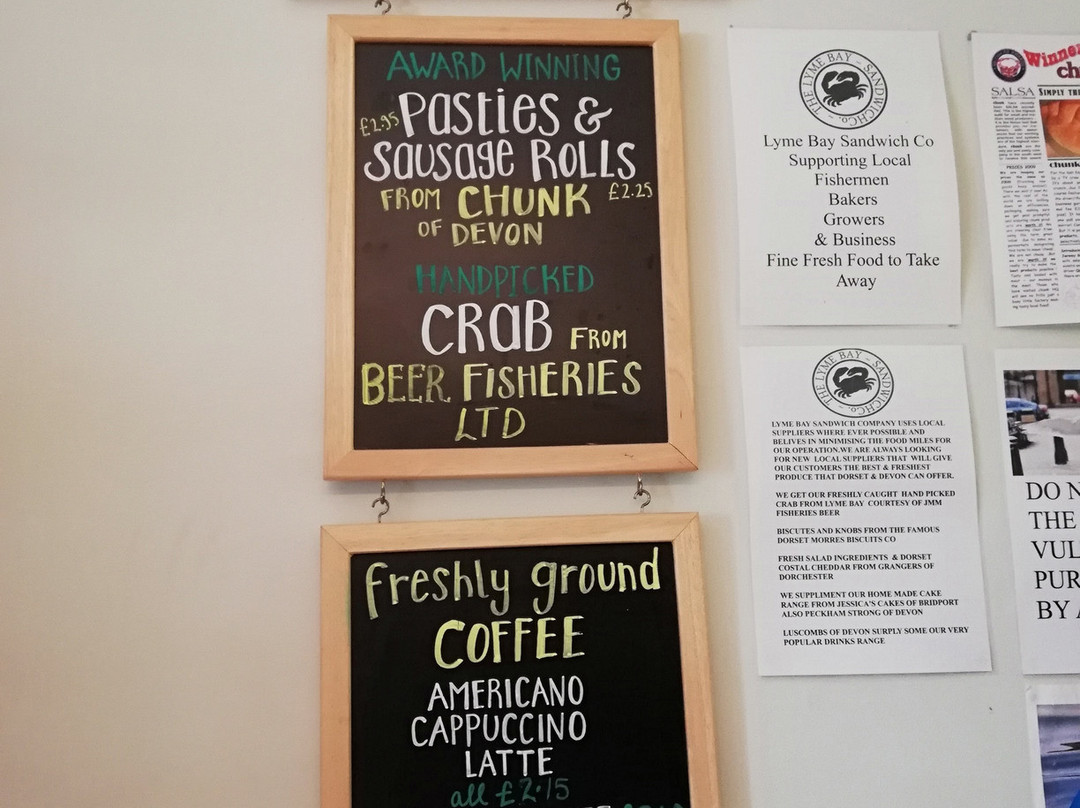 AWARD WINNING
£2.95 Pasties &
Sausage ROLLS
FROM CHUNK £2.25
OF DEVON
HANDPICKED
CRAB FROM
BEER FISHERIES
LTD
freshly ground
COFFEE
AMERICANO
CAPPUCCINO
LATTE
all £2.15
THE LYME BAY - SANDWICH Co.
Lyme Bay Sandwich Co
Supporting Local
Fishermen
Bakers
Growers
& Business
Fine Fresh Food to Take
Away
THE LYME BAY - SANDWICH Co.
LYME BAY SANDWICH COMPANY USES LOCAL
SUPPLIERS WHERE EVER POSSIBLE AND
BELIVES IN MINIMISING THE FOOD MILES FOR
OUR OPERATION.WE ARE ALWAYS LOOKING
FOR NEW LOCAL SUPPLIERS THAT WILL GIVE
OUR CUSTOMERS THE BEST & FRESHEST
PRODUCE THAT DORSET & DEVON CAN OFFER.
WE GET OUR FRESHLY CAUGHT HAND PICKED
CRAB FROM LYME BAY COURTESY OF JMM
FISHERIES BEER
BISCUTES AND KNOBS FROM THE FAMOUS
DORSET MORRES BISCUITS CO
FRESH SALAD INGREDIENTS & DORSET
COSTAL CHEDDAR FROM GRANGERS OF
DORCHESTER
WE SUPPLIMENT OUR HOME MADE CAKE
RANGE FROM JESSICA'S CAKES OF BRIDPORT
ALSO PECKHAM STRONG OF DEVON
LUSCOMBS OF DEVON SURPLY SOME OUR VERY
POPULAR DRINKS RANGE
Winne
ch
SALSA
SIMPLY TH
chunk
DO N
THE
VUL
PUR
BY A